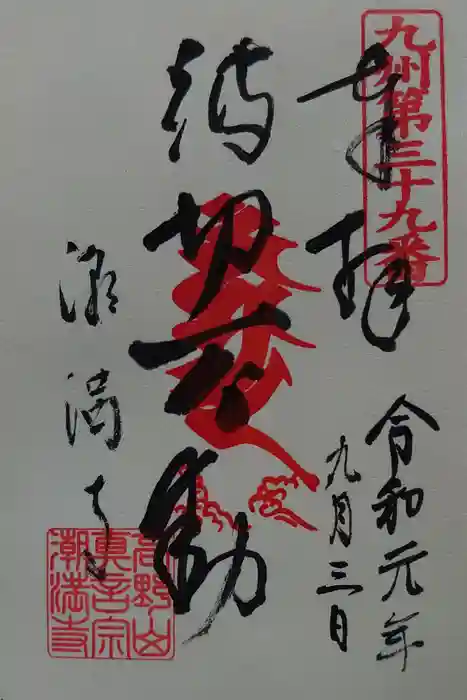 九州第三十九番
奉拝
令和元年
九月三日
波切不動
潮満寺
高野山
真言宗
潮満寺